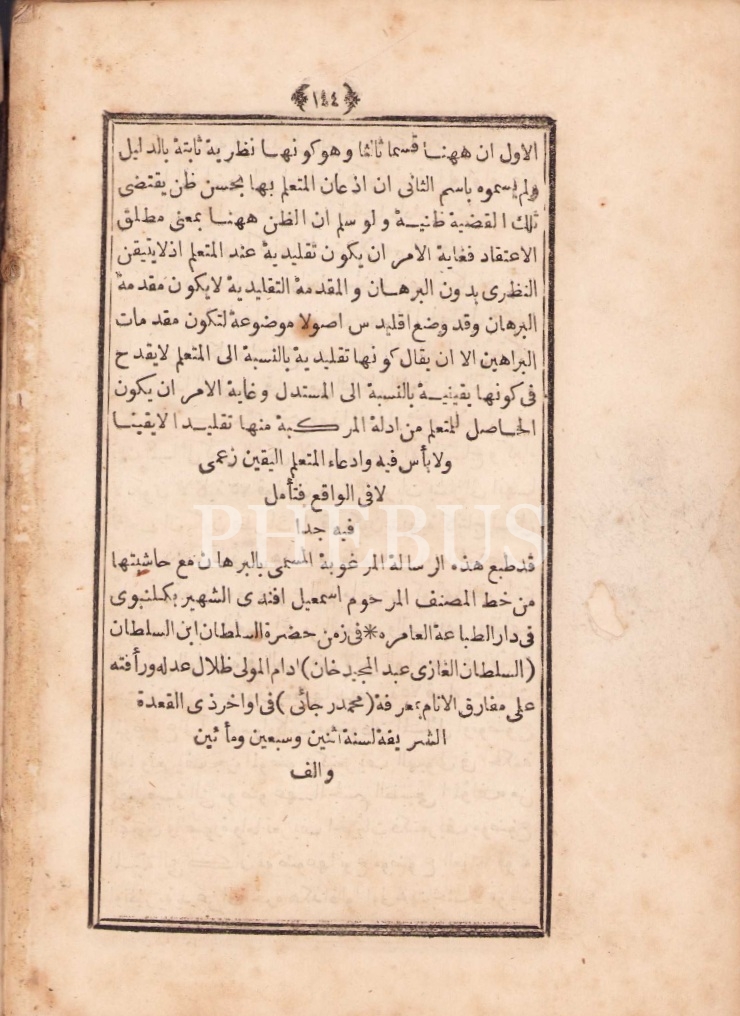 ﴿١٤٤﴾
الاول ان ههنا قسما ثالثا وهو كونها نظرية ثابتة بالدليل
ولم يسموه باسم الثانى ان اذعان المتعلم بها بحسن ظن يقتضى
تلك القضية ظنية ولو سلم ان الظن ههنا بمعنى مطلق
الاعتقاد فغاية الامر ان يكون تقليدية عند المتعلم اذ لا يتيقن
النظرى بدون البرهان والمقدمة التقليدية لا يكون مقدمة
البرهان وقد وضع اقليدس اصولا موضوعة لتكون مقدمات
البراهين الا ان يقال كونها تقليدية بالنسبة الى المتعلم لا يقدح
فى كونها يقينية بالنسبة الى المستدل وغاية الامر ان يكون
الحاصل للمتعلم من ادلة المركبة منها تقليدا لا يقينا
ولا بأس فيه وادعاء المتعلم اليقين زعمى
لا فى الواقع فتأمل
فيه جدا
قد طبع هذه الرسالة المرغوبة المسمى بالبرهان مع حاشيتها
من خط المصنف المرحوم اسمعيل افندى الشهير بكلنبوى
فى دار الطباعة العامره * فى زمن حضرة السلطان ابن السلطان
(السلطان الغازى عبد المجيد خان) ادام المولى ظلال عدله ورأفته
على مفارق الانام بمعرفة (محمد رجائى) فى اواخر ذى القعدة
الشريفة لسنة اثنين وسبعين ومأتين
والف
PHEBUS